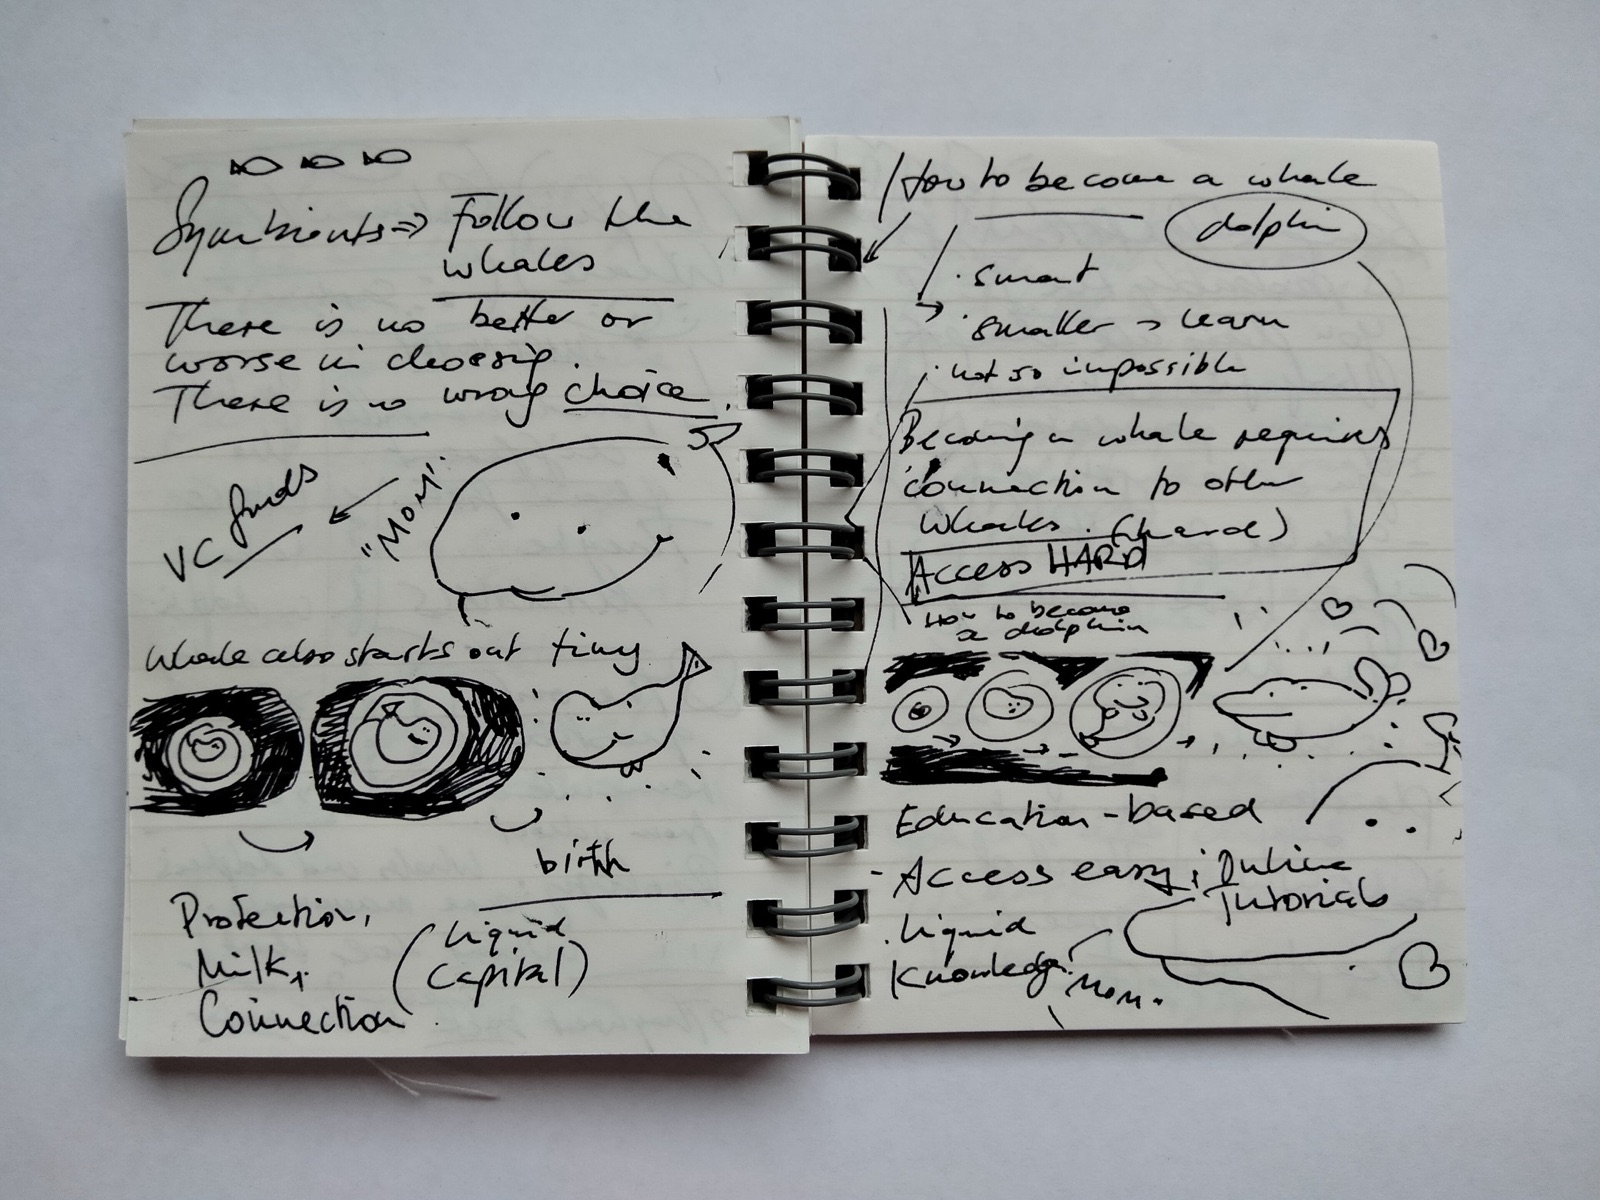 Symbionts => Follow the
whales
There is no better or
worse in choosing.
There is no wrong choice.
VC funds
"MOM"
Whale also starts out tiny
birth
Protection,
Milk,
Connection
(Liquid
Capital)
How to become a whale
dolphin
· smart
· smaller → learn
· not so impossible
Becoming a whale requires
connection to other
whales. (hard)
Access HARD
How to become
a dolphin
Education-based
- Access easy; Online
Tutorials
· Liquid
Knowledge
"Mom"